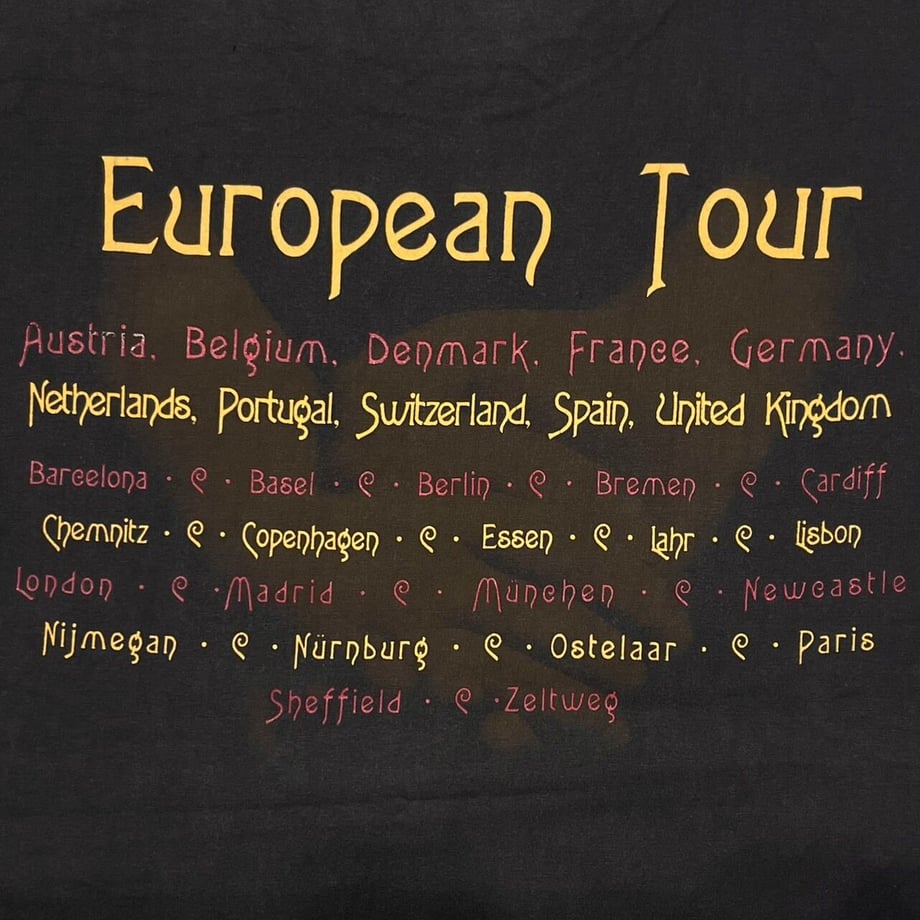 European Tour
Austria, Belgium, Denmark, France, Germany,
Netherlands, Portugal, Switzerland, Spain, United Kingdom
Barcelona · Basel · Berlin · Bremen · Cardiff
Chemnitz · Copenhagen · Essen · Lahr · Lisbon
London · Madrid · München · Newcastle
Nijmegan · Nürnburg · Ostelaar · Paris
Sheffield · Zeltweg